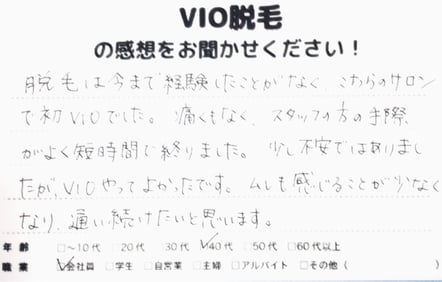 VIO脱毛
の感想をお聞かせください！
脱毛は今まで経験したことがなく、こちらのサロン
で初VIOでした。痛くもなく、スタッフの方の手際
がよく短時間で終りました。少し不安ではありまし
たが、VIOやってよかったです。ムレも感じることが少なく
なり、通い続けたいと思います。
年齢 □~10代 □20代 □30代 ☑40代 □50代 □60代以上
職業 ☑会社員 □学生 □自営業 □主婦 □アルバイト □その他（ ）